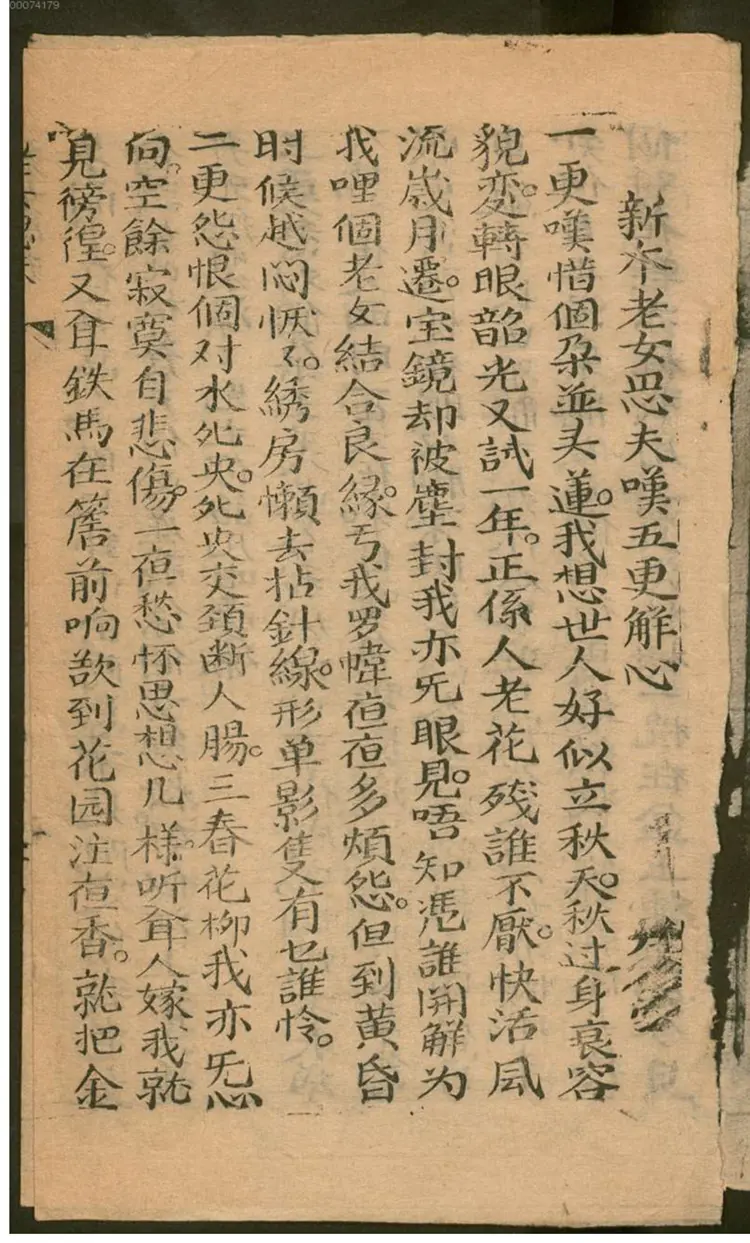 00074179
新本老女思夫嘆五更解心
一更嘆惜個朶並头蓮。我想世人好似立秋天。秋过身衰容
貌変。轉眼韶光又試一年。正係人老花残誰不厭。快活風
流歲月遷。宝鏡却被塵封我亦旡眼見。唔知凴誰開解为
我哩個老女結合良縁。亏我罗幃夜夜多煩怨。但到黄昏
时候越悶懨々。綉房懶去拈針線。形单影隻有乜誰怜。
二更怨恨個对水死央。死央交頚断人腸。三春花柳我亦旡心
向。空餘寂寞自悲傷。一夜愁怀思想几様。听耷人嫁我就
見徬徨。又耷鉄馬在簷前响。欲到花园注夜香。就把金